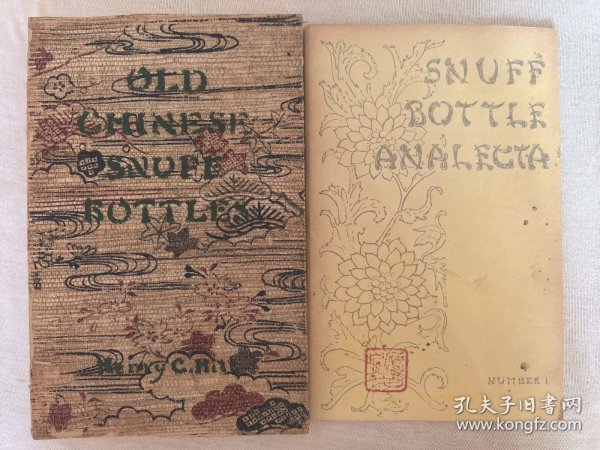 OLD
CHINESE
SNUFF
BOTTLES
Henry C. Hitt
SNUFF
BOTTLE
ANALECTA
NUMBER 1
孔夫子旧书网
www.kongfz.com